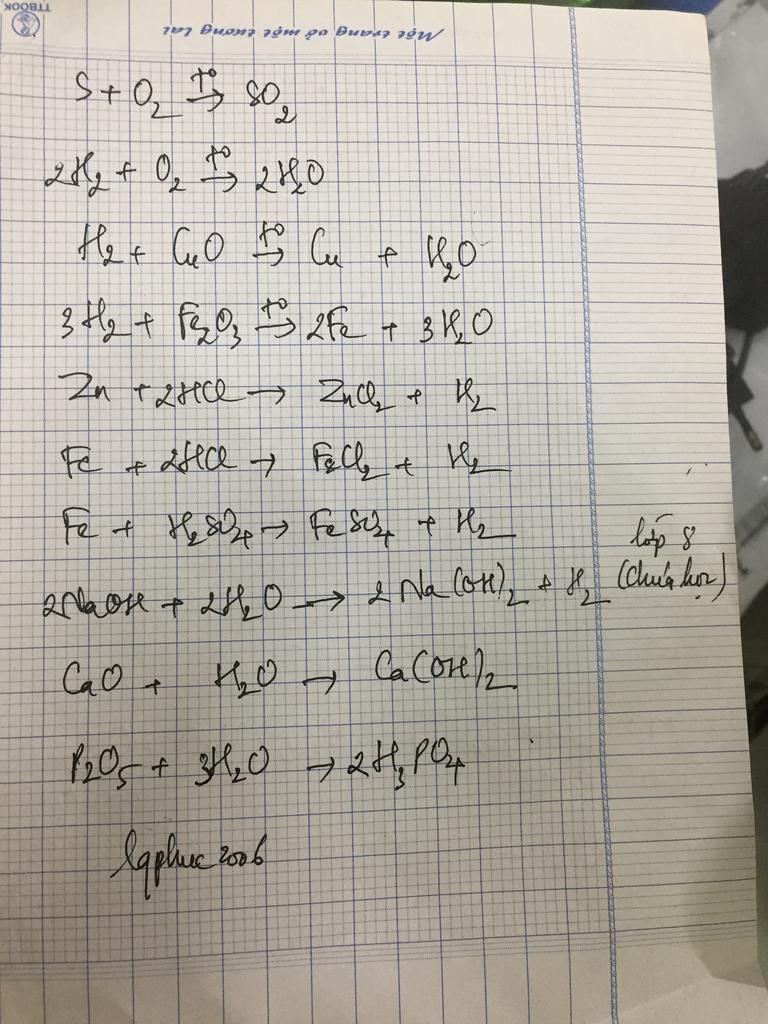 TTBOOK
Một trang vở một tương lai
S + O₂ t°→ SO₂
2H₂ + O₂ t°→ 2H₂O
H₂ + CuO t°→ Cu + H₂O
3H₂ + Fe₂O₃ t°→ 2Fe + 3H₂O
Zn + 2HCl → ZnCl₂ + H₂
Fe + 2HCl → FeCl₂ + H₂
Fe + H₂SO₄ → FeSO₄ + H₂
lớp 8
2NaOH + 2H₂O → 2Na(OH)₂ + H₂ (chưa học)
CaO + H₂O → Ca(OH)₂
P₂O₅ + 3H₂O → 2H₃PO₄
lqphuc2006